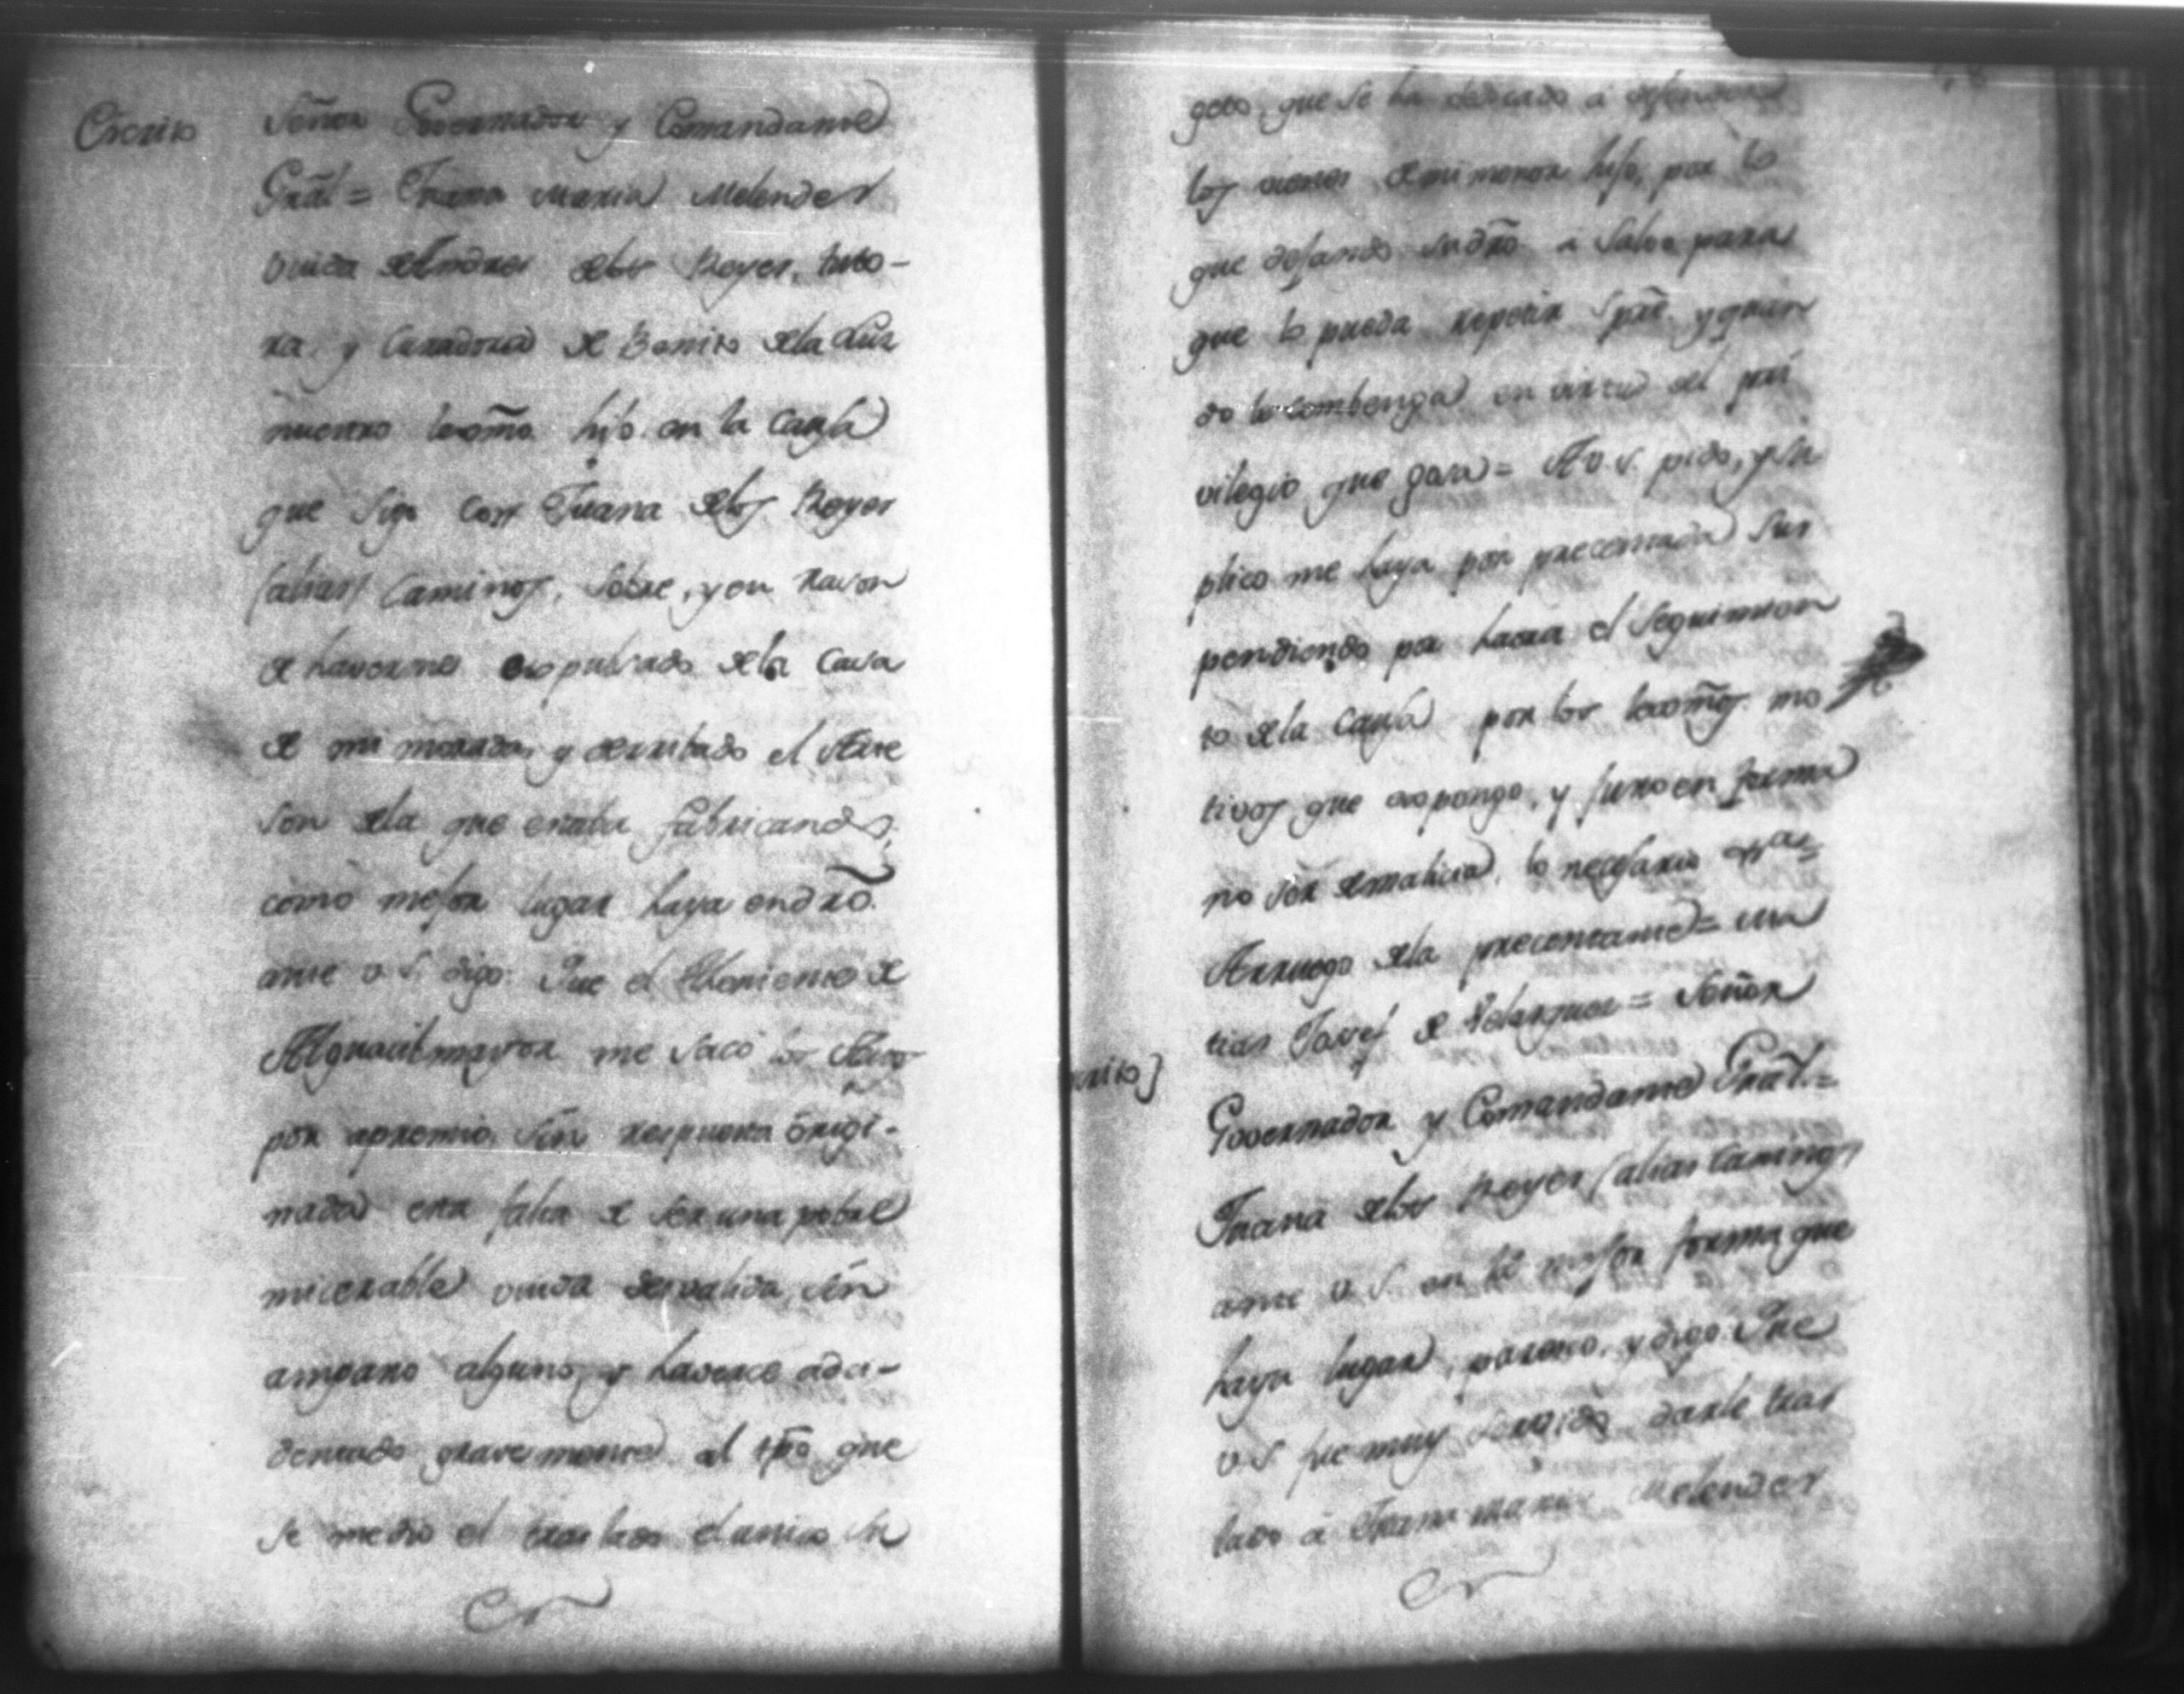 Escrito
Señor Governador y Comandante
Grãl = Juana Maria Melendes
viuda de Andres delos Reyes, tuto-
ra, y Curadora de Benito dela Luz
nuestro lexmõ hijo en la Causa
que sigo con Juana delos Reyes
(alias) Caminos, sobre, y en razon
de haverme expulsado dela Casa
de mi morada, y derribado el
son dela que estaba fabricando,
como mejor lugar haya en drõ.
ante V. S. digo: Que el theniente de
Alguacil mayor me sacó los Autos
por apremio, sin respuesta origi-
nada esta falta de ser una pobre
micerable viuda desvalida, sin
amparo alguno, y haverce acci-
dentado gravemente al tpõ que
se me dio el traslado el unico su
geto, que se ha dedicado á defender
los vienes de mi menor hijo, por lo
que dejando su drõ a salvo para
que lo pueda repetir spre. y quan
do le combenga en virtud del pri
vilegio que goza = A V. S. pido, y su
plico me haya por precentada sus
pendiendo por haora el seguimien
to dela Causa por los lexmõs mo
tivos que expongo, y juro en forma
no ser de malicia, lo necesario etcª =
Arruego dela precentante = Ma
tias Josef de Velasquez = Señor
crito]
Governador y Comandante Grãl. =
Juana delos Reyes (alias Caminos)
ante V. S. en la mejor forma que
haya lugar, paresco, y digo: Que
V. S. fue muy servido darle tras
lado á Juana Maria Melendes